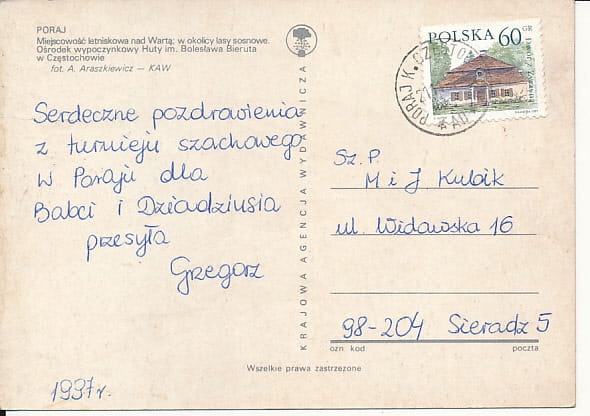 PORAJ
Miejscowość letniskowa nad Wartą; w okolicy lasy sosnowe.
Ośrodek wypoczynkowy Huty im. Bolesława Bieruta
w Częstochowie
fot. A. Araszkiewicz — KAW
POLSKA 60 GR
PORAJ K. CZĘSTO
Serdeczne pozdrowienia
z turnieju szachowego
w Poraju dla
Babci i Dziadziusia
przesyła
Grzegorz
1997r.
KRAJOWA AGENCJA WYDAWNICZA
Sz. P.
M i J Kubik
ul. Widawska 16
98-204 Sieradz 5
ozn. kod poczta
Wszelkie prawa zastrzeżone